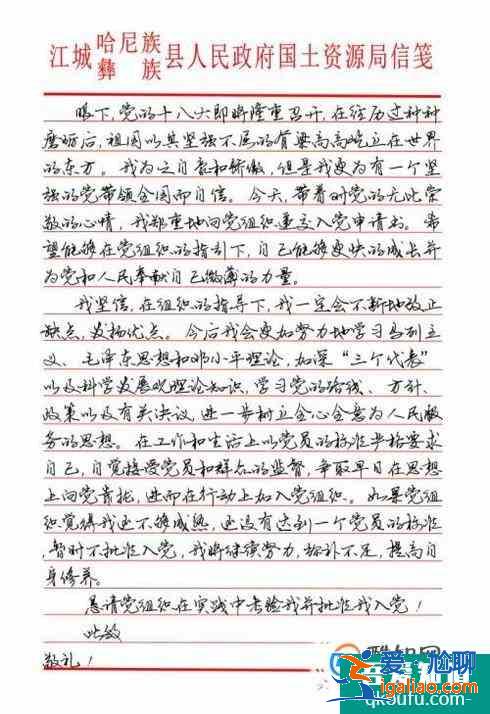 江城哈尼族彝族县人民政府国土资源局信笺
眼下,党的十八大即将隆重召开,在经历过种种
磨砺后,祖国以其坚强不屈的脊梁高高屹立在世界
的东方。我为之自豪和骄傲,但是我更为有一个坚
强的党带领全国而自信。今天,带着对党的无比崇
敬的心情,我郑重地向党组织递交入党申请书。希
望能够在党组织的指引下,自己能够更快的成长并
为党和人民奉献自己微薄的力量。
我坚信,在组织的指导下,我一定会不断地改正
缺点,发扬优点。今后我会更加努力地学习马列主
义、毛泽东思想和邓小平理论,加深“三个代表”
以及科学发展观理论知识,学习党的路线、方针、
政策以及有关决议,进一步树立全心全意为人民服
务的思想。在工作和生活上以党员的标准严格要求
自己,自觉接受党员和群众的监督,争取早日在思想
上向党靠拢,进而在行动上加入党组织。如果党组
织觉得我还不够成熟,还没有达到一个党员的标准,
暂时不批准入党,我将继续努力,弥补不足,提高自
身修养。
恳请党组织在实践中考验我并批准我入党!
此致
敬礼!
爱尬聊
igaliao.com
qk5086.com